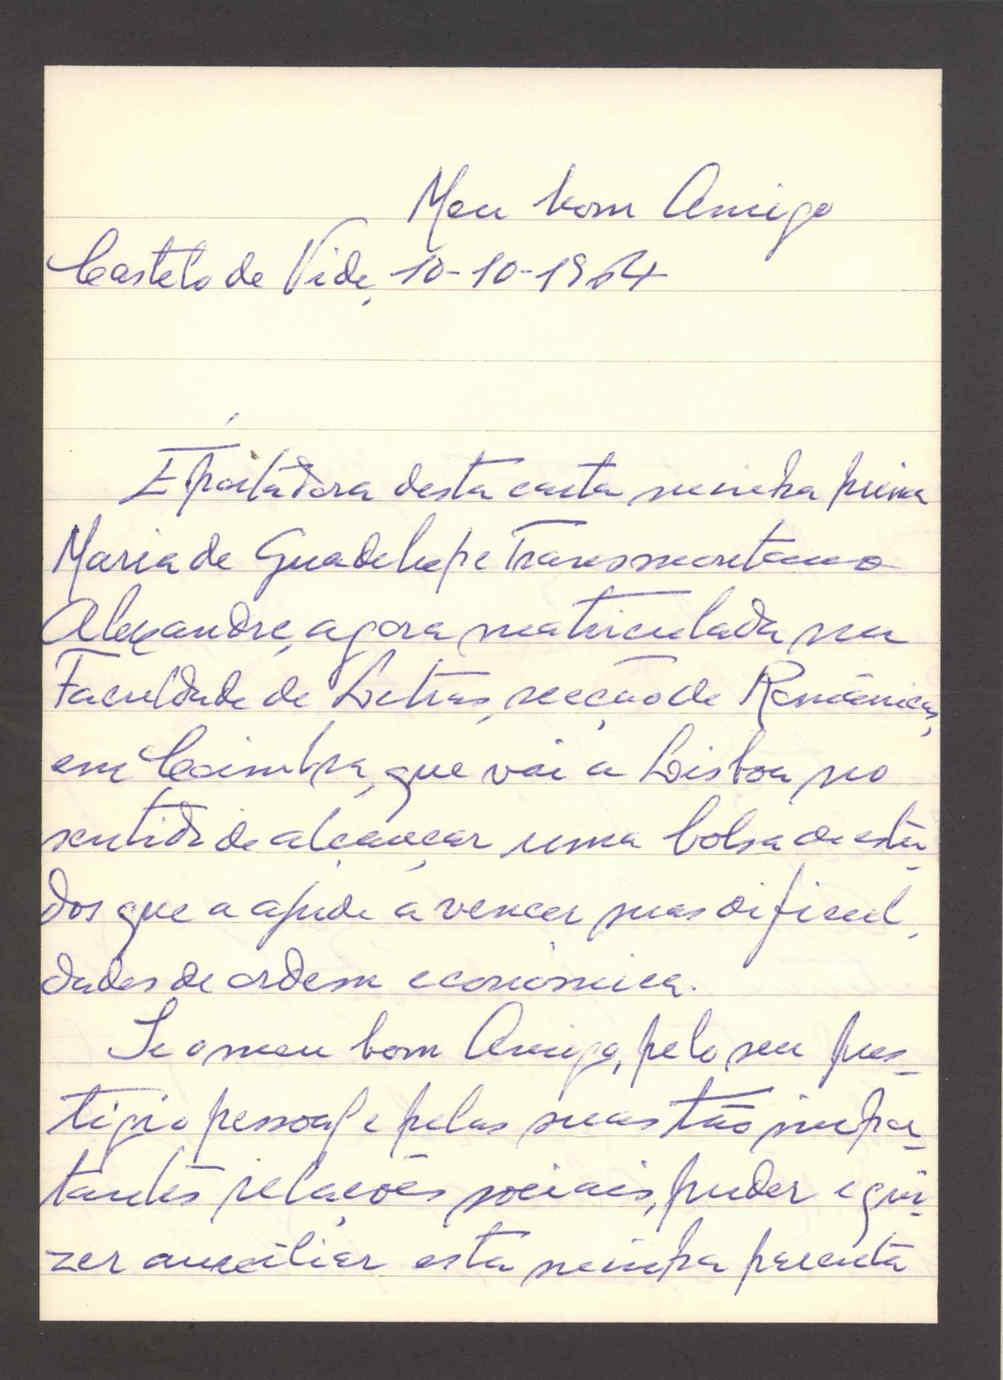 Meu bom Amigo
Castelo de Vide, 10-10-1964
É portadora desta carta minha prima
Maria de Guadelupe Transmontano
Alexandre, agora matriculada na
Faculdade de Letras, secção de Românicas,
em Coimbra, que vai a Lisboa no
sentido de alcançar uma bolsa de estu-
dos que a ajude a vencer suas dificul-
dades de ordem económica.
Se o meu bom Amigo, pelo seu pres-
tígio pessoal e pelas suas tão impor-
tantes relações sociais, puder e qui-
zer auxiliar esta minha parenta